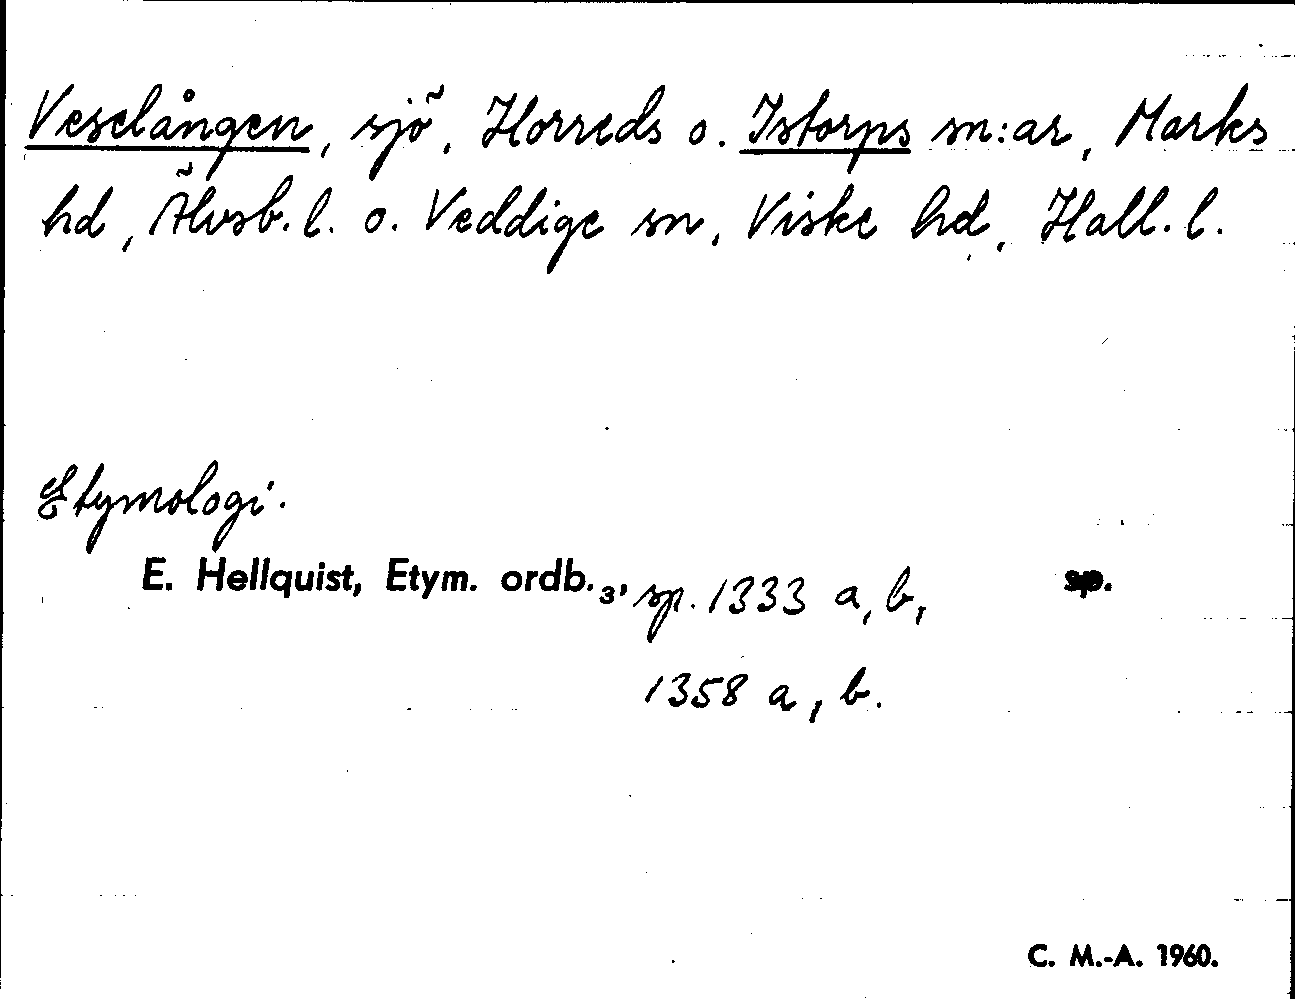 Veselången, sjö, Horreds o. Istorps sn:ar, Marks
hd, Älvsb. l. o. Veddige sn, Viske hd, Hall. l.
Etymologi.
E. Hellquist, Etym. ordb. 3, sp. 1333 a, b, sp.
1358 a, b.
C. M.-A. 1960.